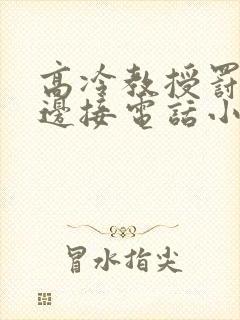 高冷教授罰
邊接電話小
冒水指尖